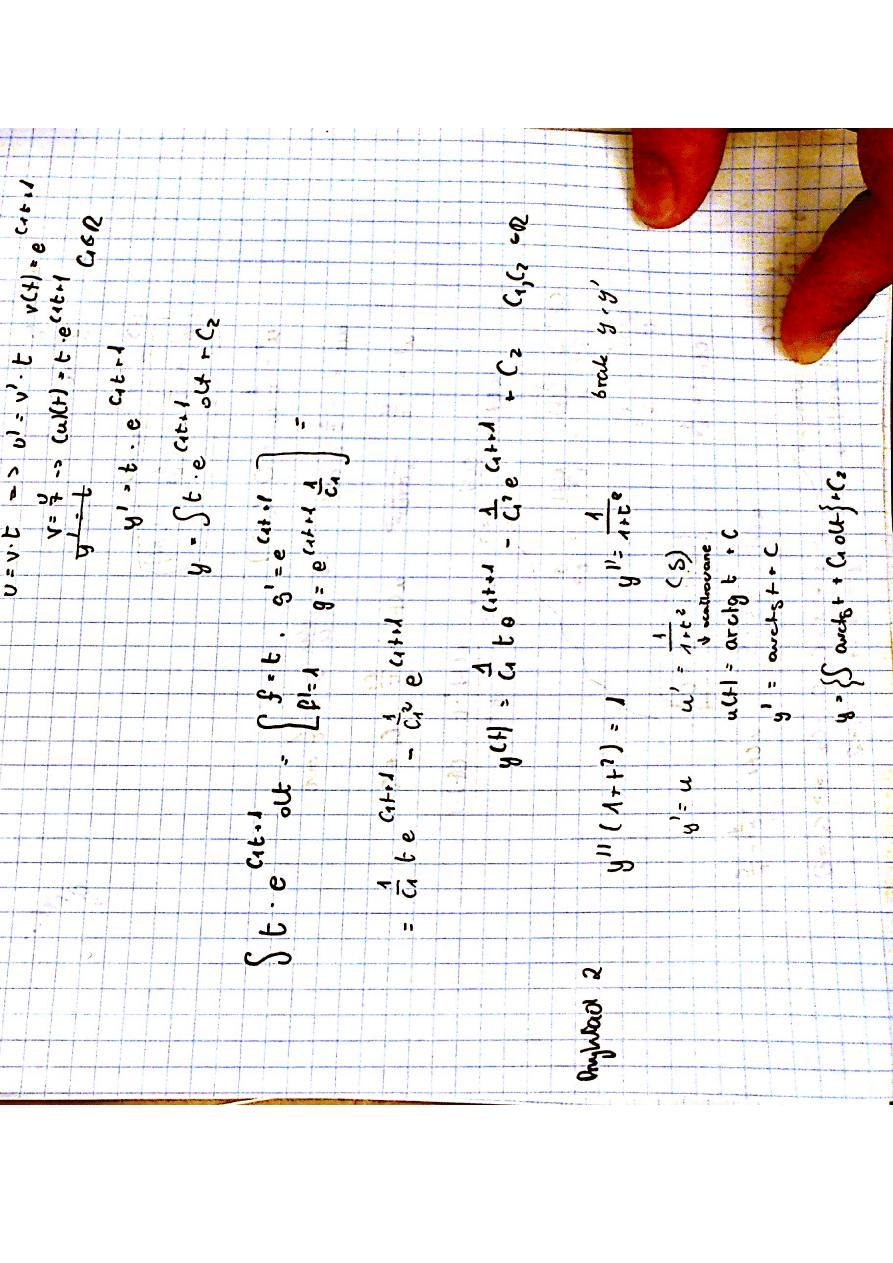 u = v·t => u' = v'·t v(t) = e^{C₁t+1}
v = u/t -> (u)(t) = t·e^{C₁t+1} C₁∈R
y' = t
y' = t·e^{C₁t+1}
y = ∫ t·e^{C₁t+1} dt + C₂
∫ t·e^{C₁t+1} dt = [ f = t. g' = e^{C₁t+1}
f' = 1 g = e^{C₁t+1} 1/C₁ ] =
= 1/C₁ t e^{C₁t+1} - 1/C₁² e^{C₁t+1}
y(t) = 1/C₁ t e^{C₁t+1} - 1/C₁² e^{C₁t+1} + C₂ C₁,C₂ ∈R
Przykład 2 y''(1+t²) = 1 y'' = 1/(1+t²) brak y i y'
y' = u u' = 1/(1+t²) (S)
↓ scałkowane
u(t) = arctg t + C
y' = arctg t + C
y = {∫ arctg t + C₁ dt} + C₂